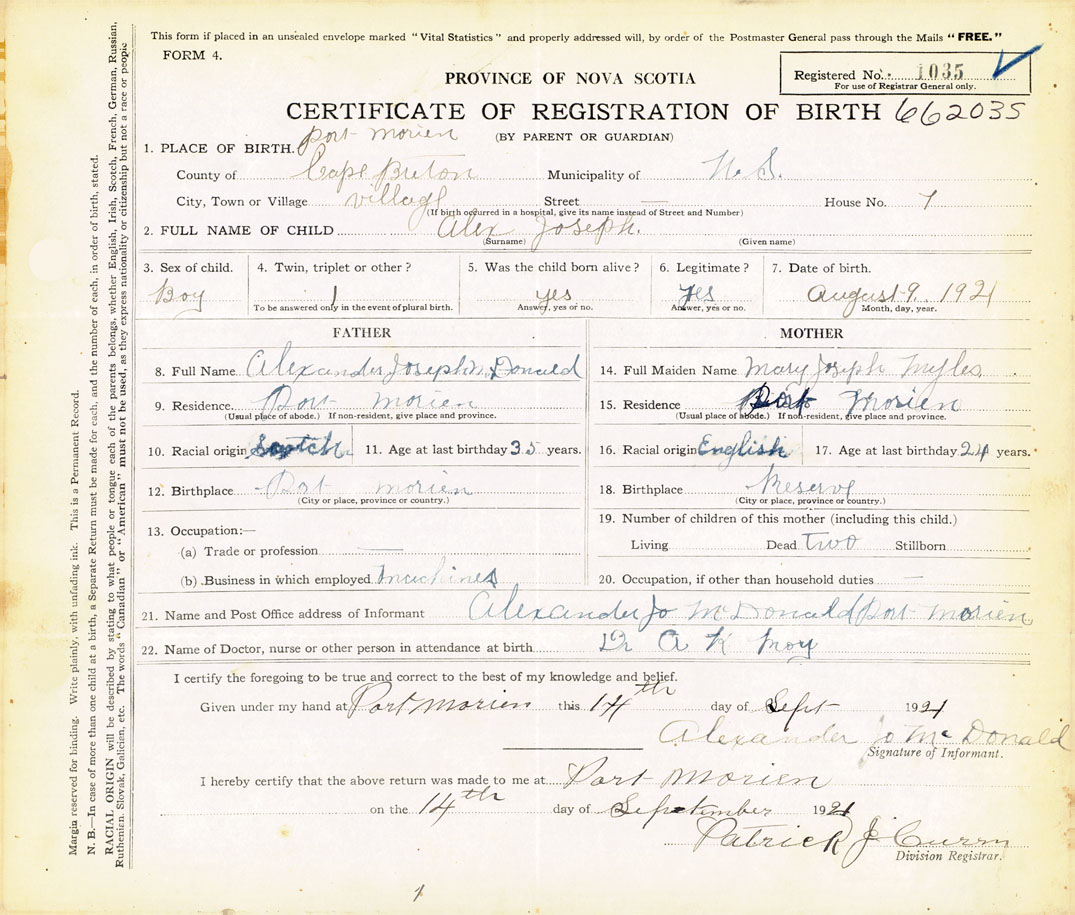 This form if placed in an unsealed envelope marked "Vital Statistics" and properly addressed will, by order of the Postmaster General pass through the Mails "FREE."
FORM 4.
Registered No. 1035
For use of Registrar General only.
PROVINCE OF NOVA SCOTIA
CERTIFICATE OF REGISTRATION OF BIRTH 662035
(BY PARENT OR GUARDIAN)
1. PLACE OF BIRTH. Port Morien
County of Cape Breton Municipality of N. S.
City, Town or Village village Street — House No. 7
(If birth occurred in a hospital, give its name instead of Street and Number)
2. FULL NAME OF CHILD Alex Joseph.
(Surname) (Given name)
3. Sex of child. 4. Twin, triplet or other? 5. Was the child born alive? 6. Legitimate? 7. Date of birth.
Boy 1 yes yes August 9. 1921
To be answered only in the event of plural birth. Answer, yes or no. Answer, yes or no. Month, day, year.
FATHER MOTHER
8. Full Name Alexander Joseph Mc Donald 14. Full Maiden Name Mary Joseph Myles
9. Residence. Port Morien 15. Residence Port Morien
(Usual place of abode.) If non-resident, give place and province. (Usual place of abode.) If non-resident, give place and province.
10. Racial origin Scotch 11. Age at last birthday 35 years. 16. Racial origin English 17. Age at last birthday 24 years.
12. Birthplace Port Morien 18. Birthplace Reserve
(City or place, province or country.) (City or place, province or country.)
13. Occupation:— 19. Number of children of this mother (including this child.)
(a) Trade or profession — Living Dead two Stillborn
(b) Business in which employed 20. Occupation, if other than household duties —
21. Name and Post Office address of Informant Alexander Jo McDonald Port Morien
22. Name of Doctor, nurse or other person in attendance at birth Dr A K Moy
I certify the foregoing to be true and correct to the best of my knowledge and belief.
Given under my hand at Port Morien this 14th day of Sept 1921
Alexander Jo McDonald
Signature of Informant.
I hereby certify that the above return was made to me at Port Morien
on the 14th day of September 1921
Patrick J Curry
Division Registrar.
1
Margin reserved for binding. Write plainly, with unfading ink. This is a Permanent Record.
N. B.—In case of more than one child at a birth, a Separate Return must be made for each, and the number of each, in order of birth, stated.
RACIAL ORIGIN will be described by stating to what people or tongue each of the parents belongs, whether English, Irish, Scotch, French, German, Russian,
Ruthenian, Slovak, Galician, etc. The words "Canadian" or "American" must not be used, as they express nationality or citizenship but not a race or people